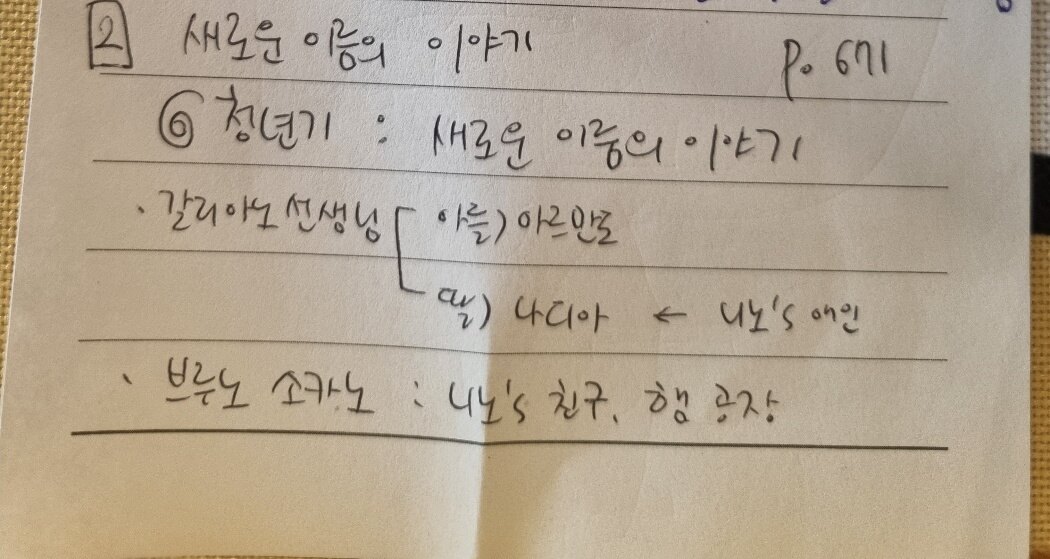 2 새로운 이름의 이야기 p. 671
⑥ 청년기 : 새로운 이름의 이야기
· 갈리아노 선생님 아들) 아르만도
딸) 나디아 ← 니노's 애인
· 브루노 소카노 : 니노's 친구. 햄 공장